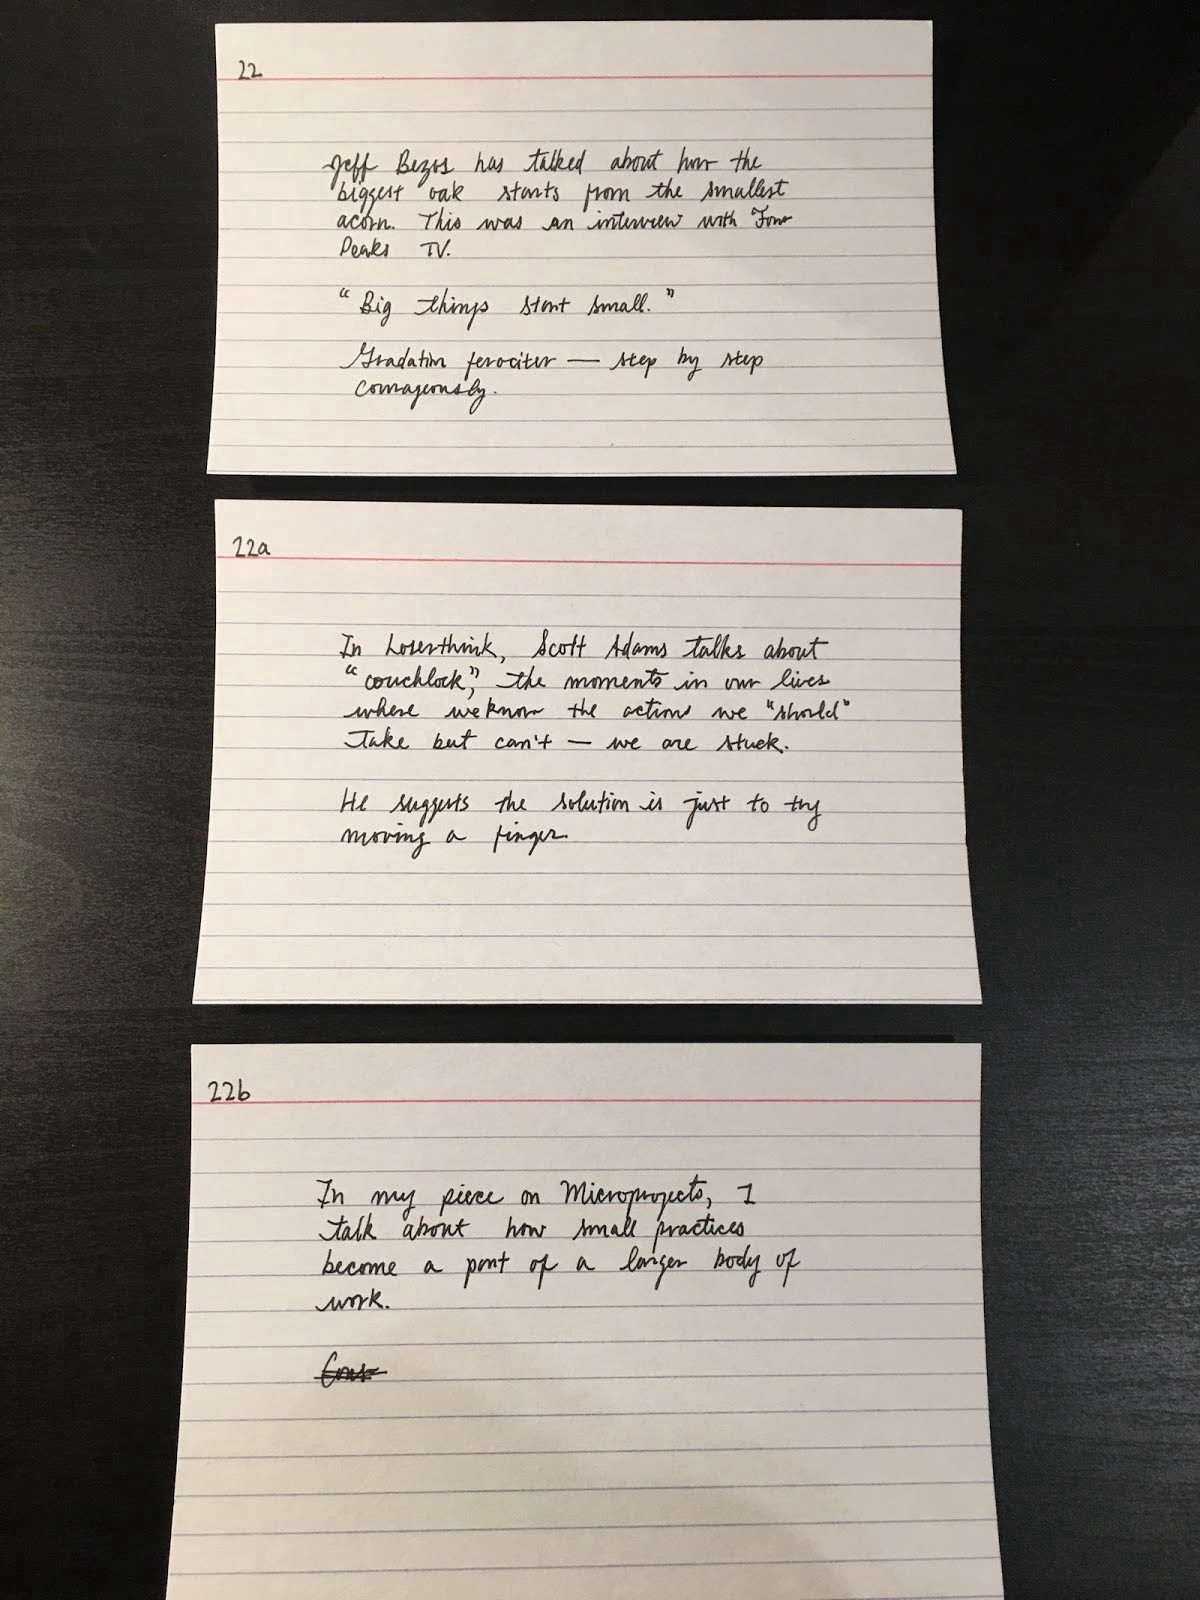 22
Jeff Bezos has talked about how the
biggest oak starts from the smallest
acorn. This was an interview with Four
Peaks TV.
"Big things start small."
Gradatim ferociter — step by step
courageously.
22a
In Loserthink, Scott Adams talks about
"couchlock", the moments in our lives
where we know the actions we "should"
take but can't — we are stuck.
He suggests the solution is just to try
moving a finger.
22b
In my piece on Microprojects, I
talk about how small practices
become a part of a larger body of
work.